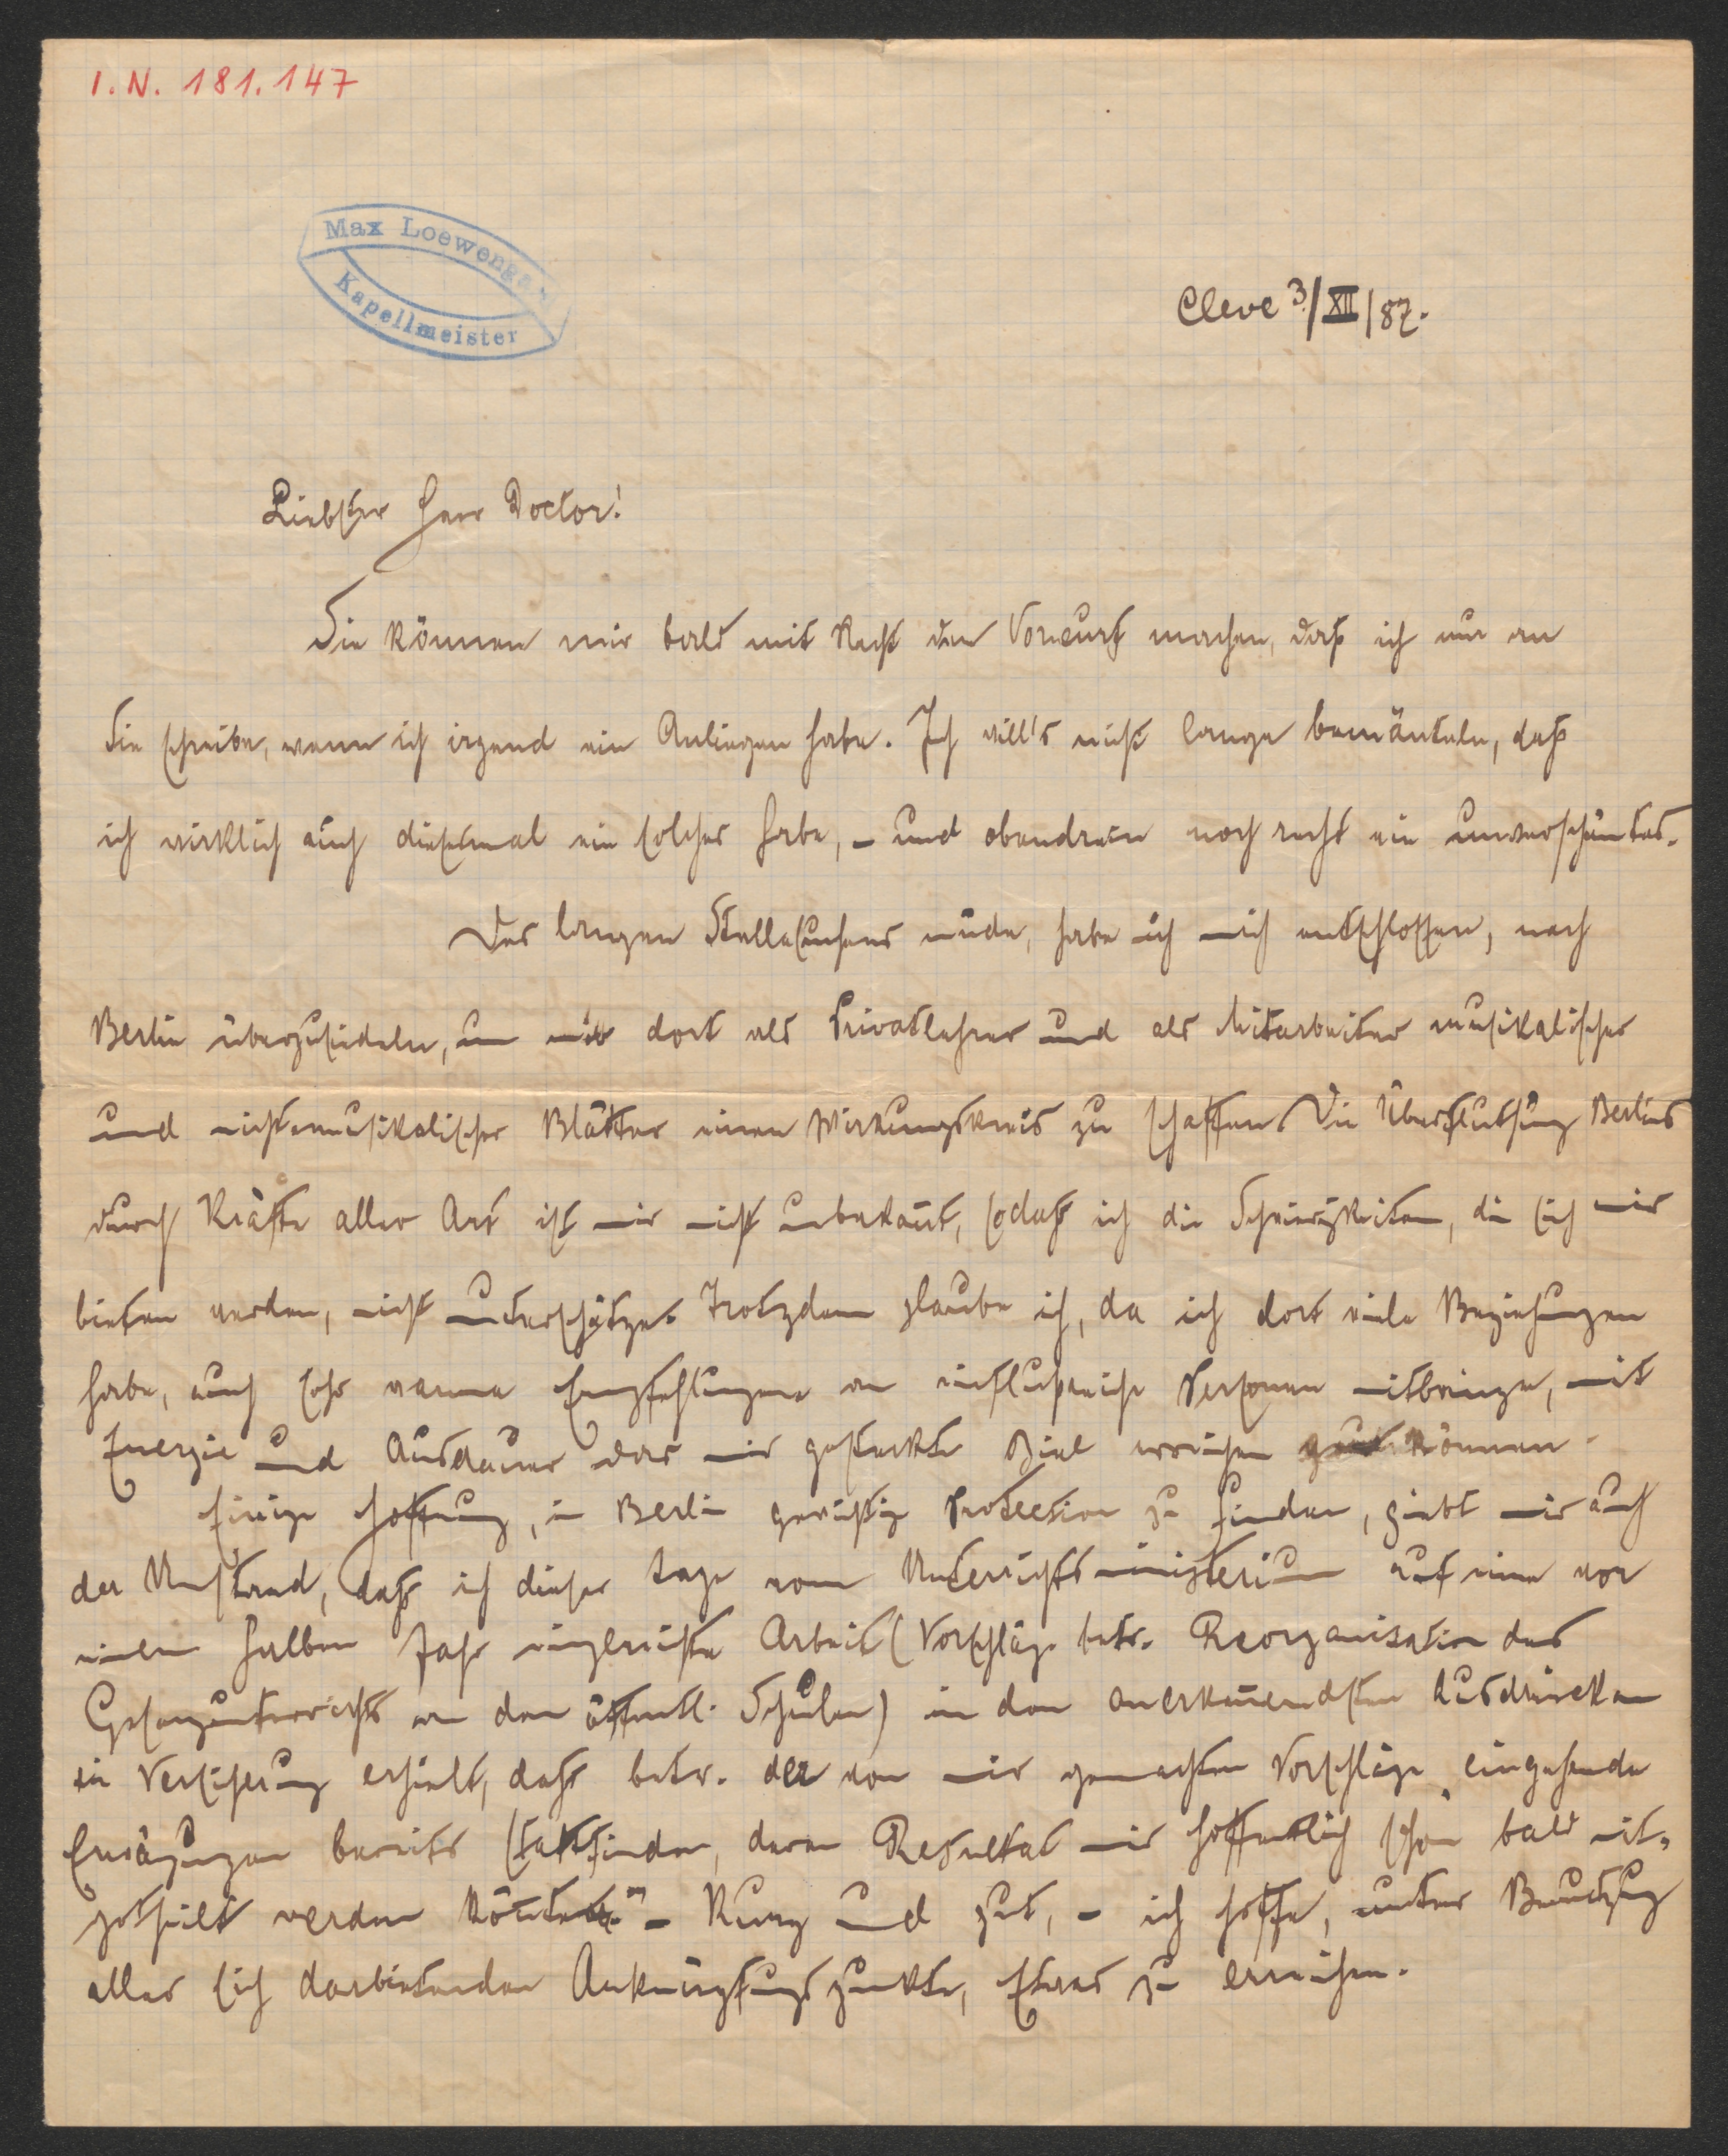 I. N. 181.147
Max Loewengard
Kapellmeister
Cleve 3/XII/87.
Liebster Herr Doctor!
Sie können mir bald mit Recht den Vorwurf machen, daß ich nur an
Sie schreibe, wenn ich irgend ein Anliegen habe. Ich will's nicht lange bemänteln, daß
ich wirklich auch diesesmal ein solches habe, – und obendrein noch recht ein unverschämtes.
Des langen Stellesuchens müde, habe ich mich entschlossen, nach
Berlin überzusiedeln, um mir dort als Privatlehrer und als Mitarbeiter musikalischer
und nichtmusikalischer Blätter einen Wirkungskreis zu schaffen. Die Überfluthung Berlins
durch Kräfte aller Art ist mir nicht unbekannt, sodaß ich die Schwierigkeiten, die sich mir
bieten werden, nicht unterschätze. Trotzdem glaube ich, da ich dort viele Beziehungen
habe, auch sehr warme Empfehlungen an einflußreiche Personen mitbringe, mit
Energie und Ausdauer das mir gesteckte Ziel erreichen zu können.
Einige Hoffnung, in Berlin gewichtige Protection zu finden, giebt mir auch
der Umstand, daß ich dieser Tage vom Unterrichtsministerium auf eine vor
einem halben Jahr eingereichte Arbeit (Vorschläge betr. Reorganisation des
Gesangunterrichts an den öffentl. Schulen) in den anerkennendsten Ausdrücken
die Versicherung erhielt, daß betr. der von mir gemachten Vorschläge „eingehende
Erwägungen bereits stattfinden, deren Resultat mir hoffentlich schon bald mit-
getheilt werden könnte.“ – Kurz und gut, – ich hoffe, unter Benutzung
aller sich darbietenden Anknüpfungspunkte, Etwas zu erreichen.